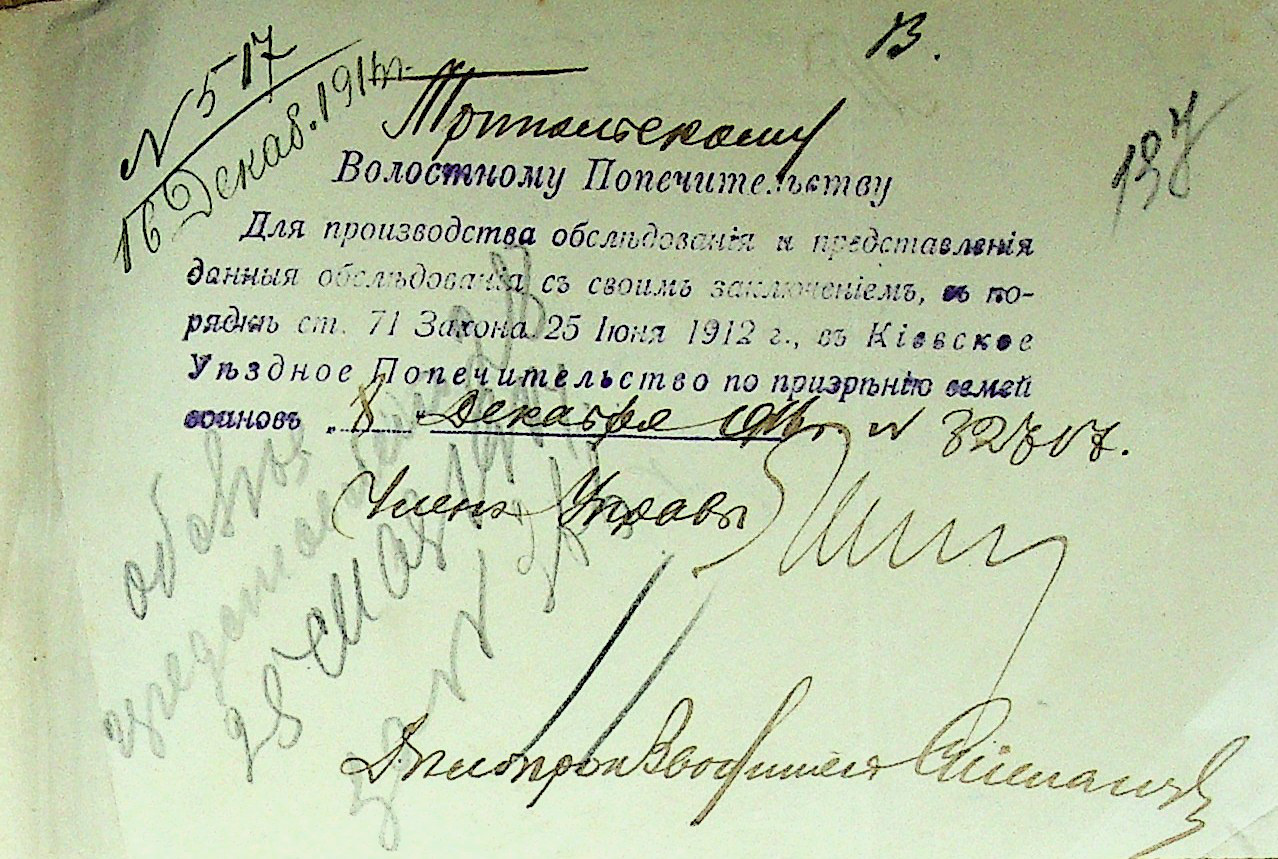 В.
N 517
16 Декаб. 191 г.
137
Трипольскому
Волостному Попечительству
Для производства обслѣдованія и представленія
данныя обслѣдованія съ своимъ заключеніемъ, въ по-
рядкѣ ст. 71 Закона 25 Іюня 1912 г., въ Кіевское
Уѣздное Попечительство по призрѣнію семей
воиновъ „ 8 " Декабря 191 г. N 32707.
Членъ Управы
28 мая
за N